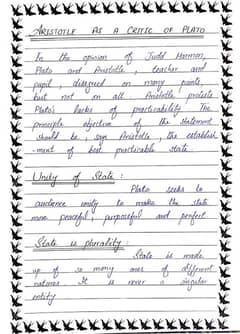 ARISTOTLE AS A CRITIC OF PLATO
In the opinion of Judd Harmon,
Plato and Aristotle, teacher and
pupil, disagreed on many points
but not on all. Aristotle protests
Plato's lacks of practicability. The
principle objective of the statement
should be, says Aristotle, the establish
-ment of best practicable state.
Unity of State:
Plato seeks to
audience unity to make the state
more peaceful, purposeful and perfect
State is plurality:
State is made
up of so many ones of different
natures. It is never a singular
entity